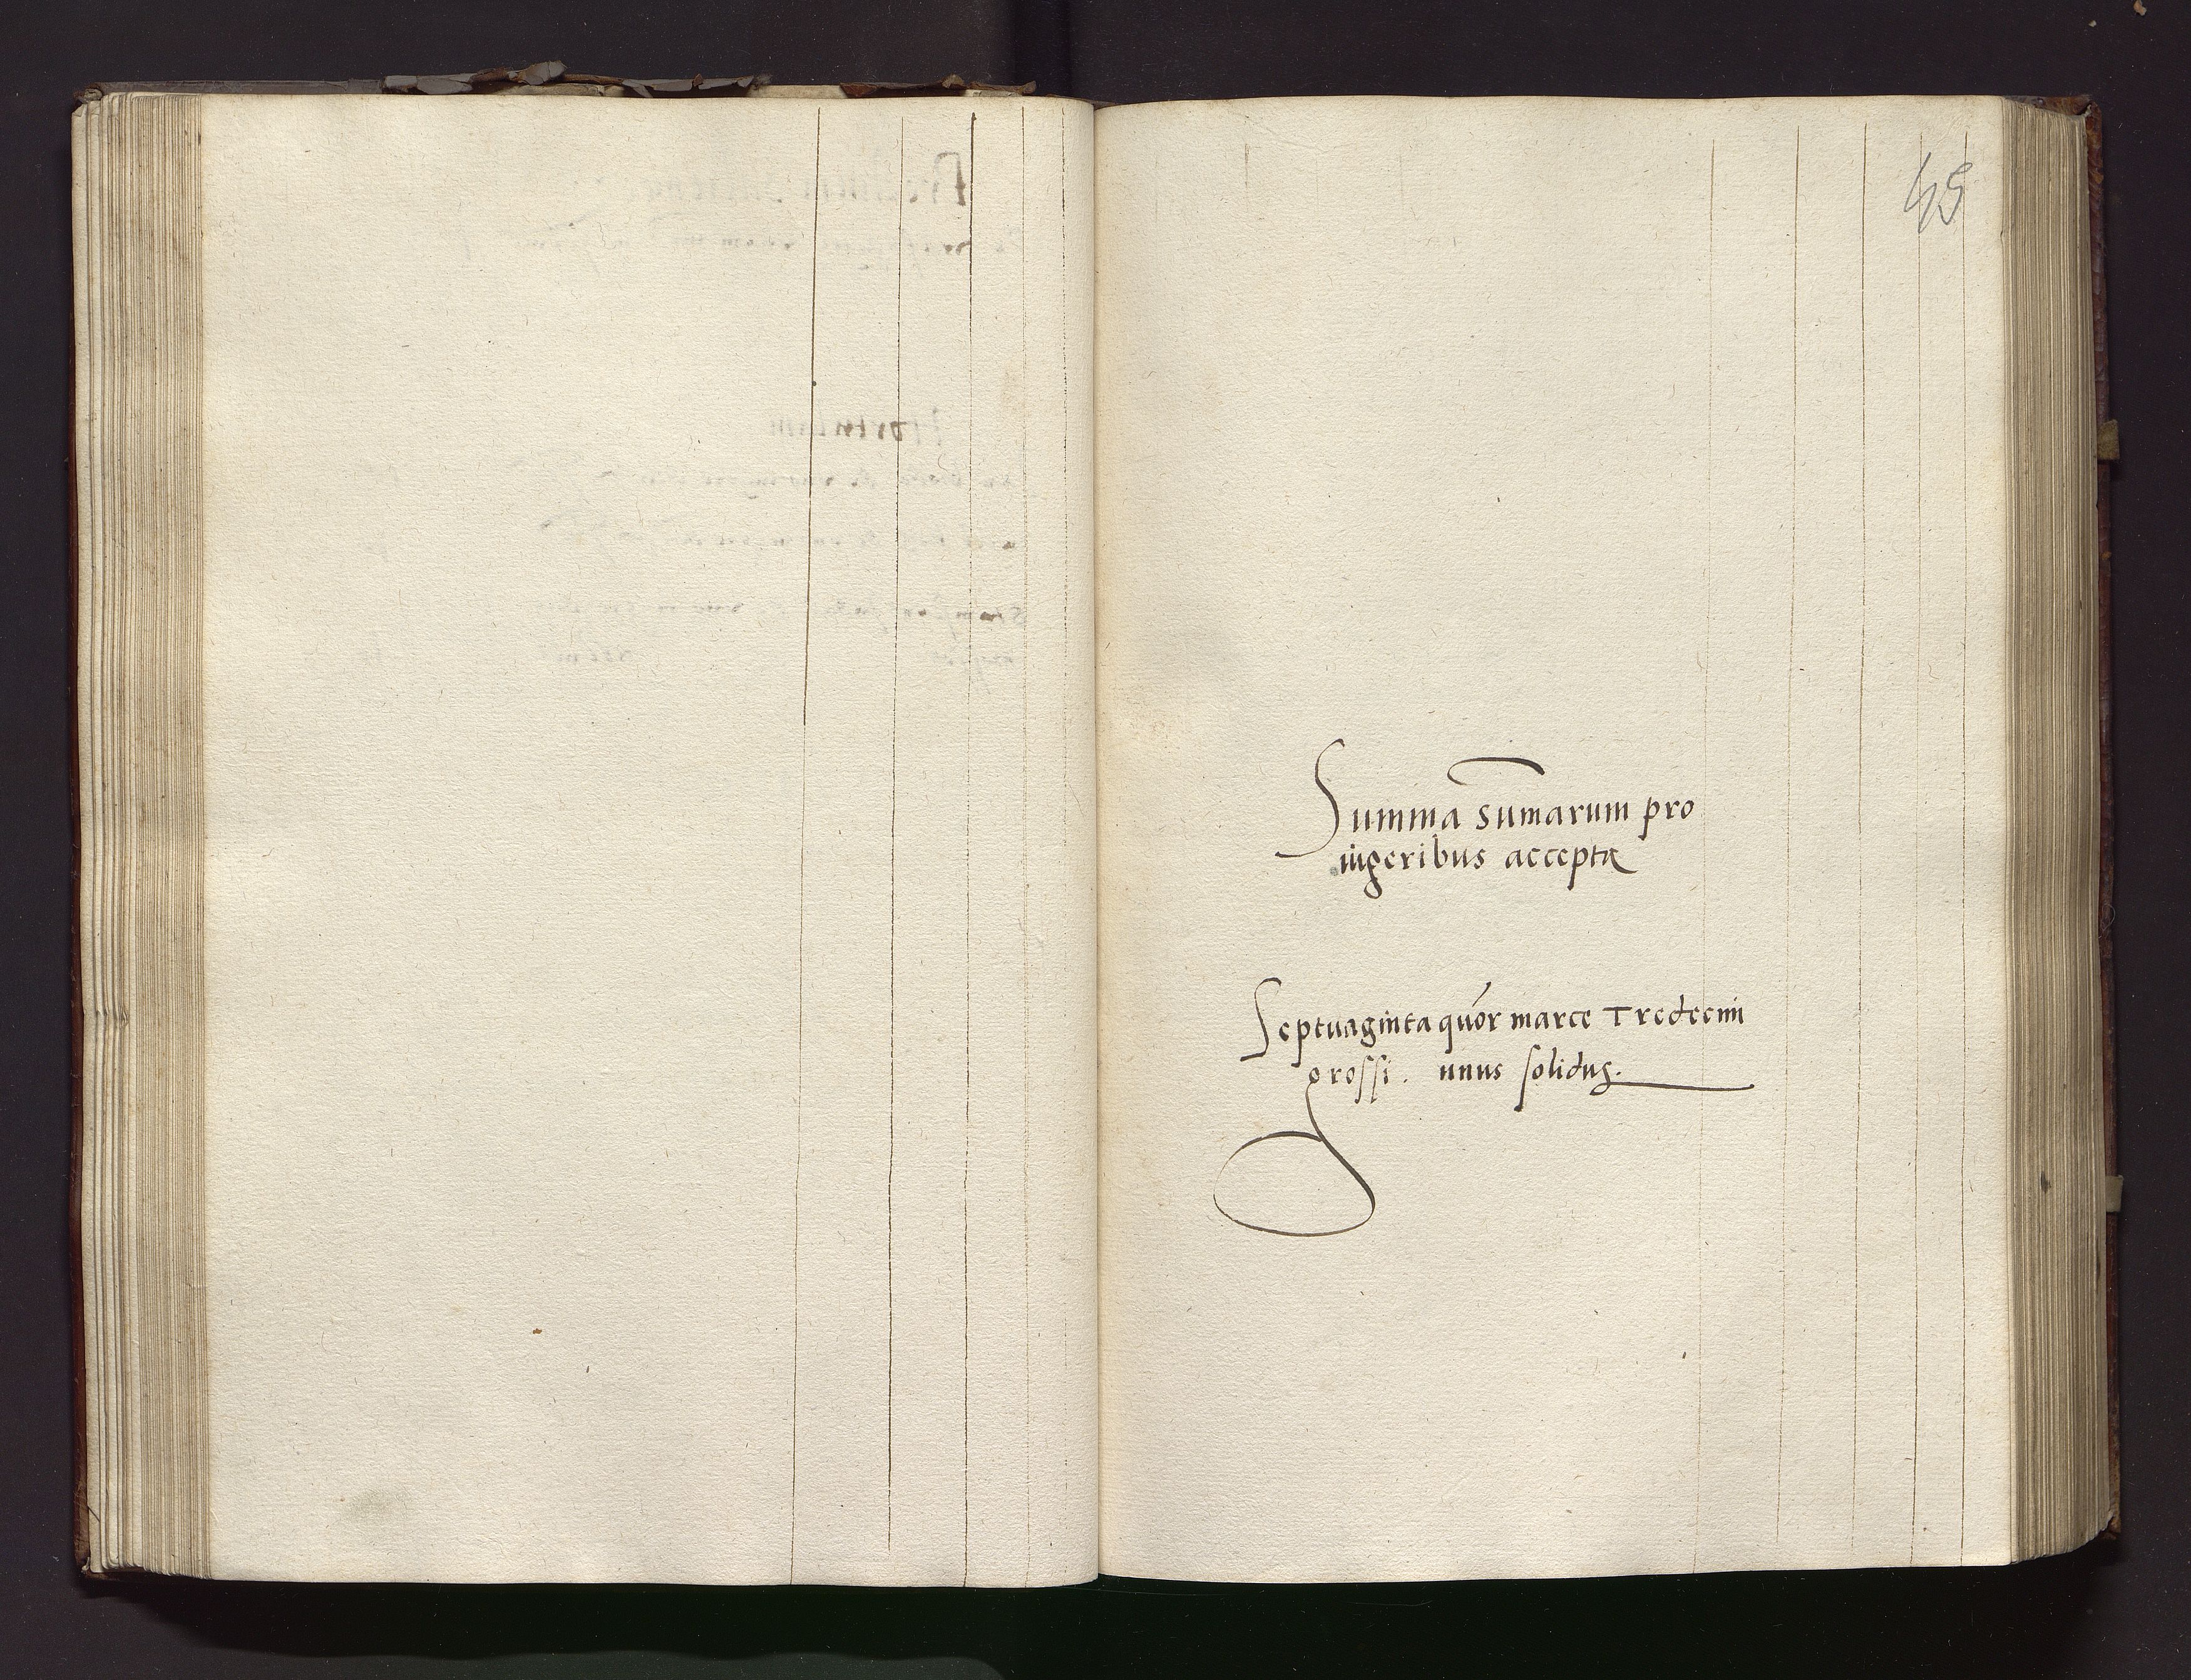 45
Summa sumarum pro
iugeribus accepta
Septuaginta quor marce Tredecim
grossi. unus solidus.